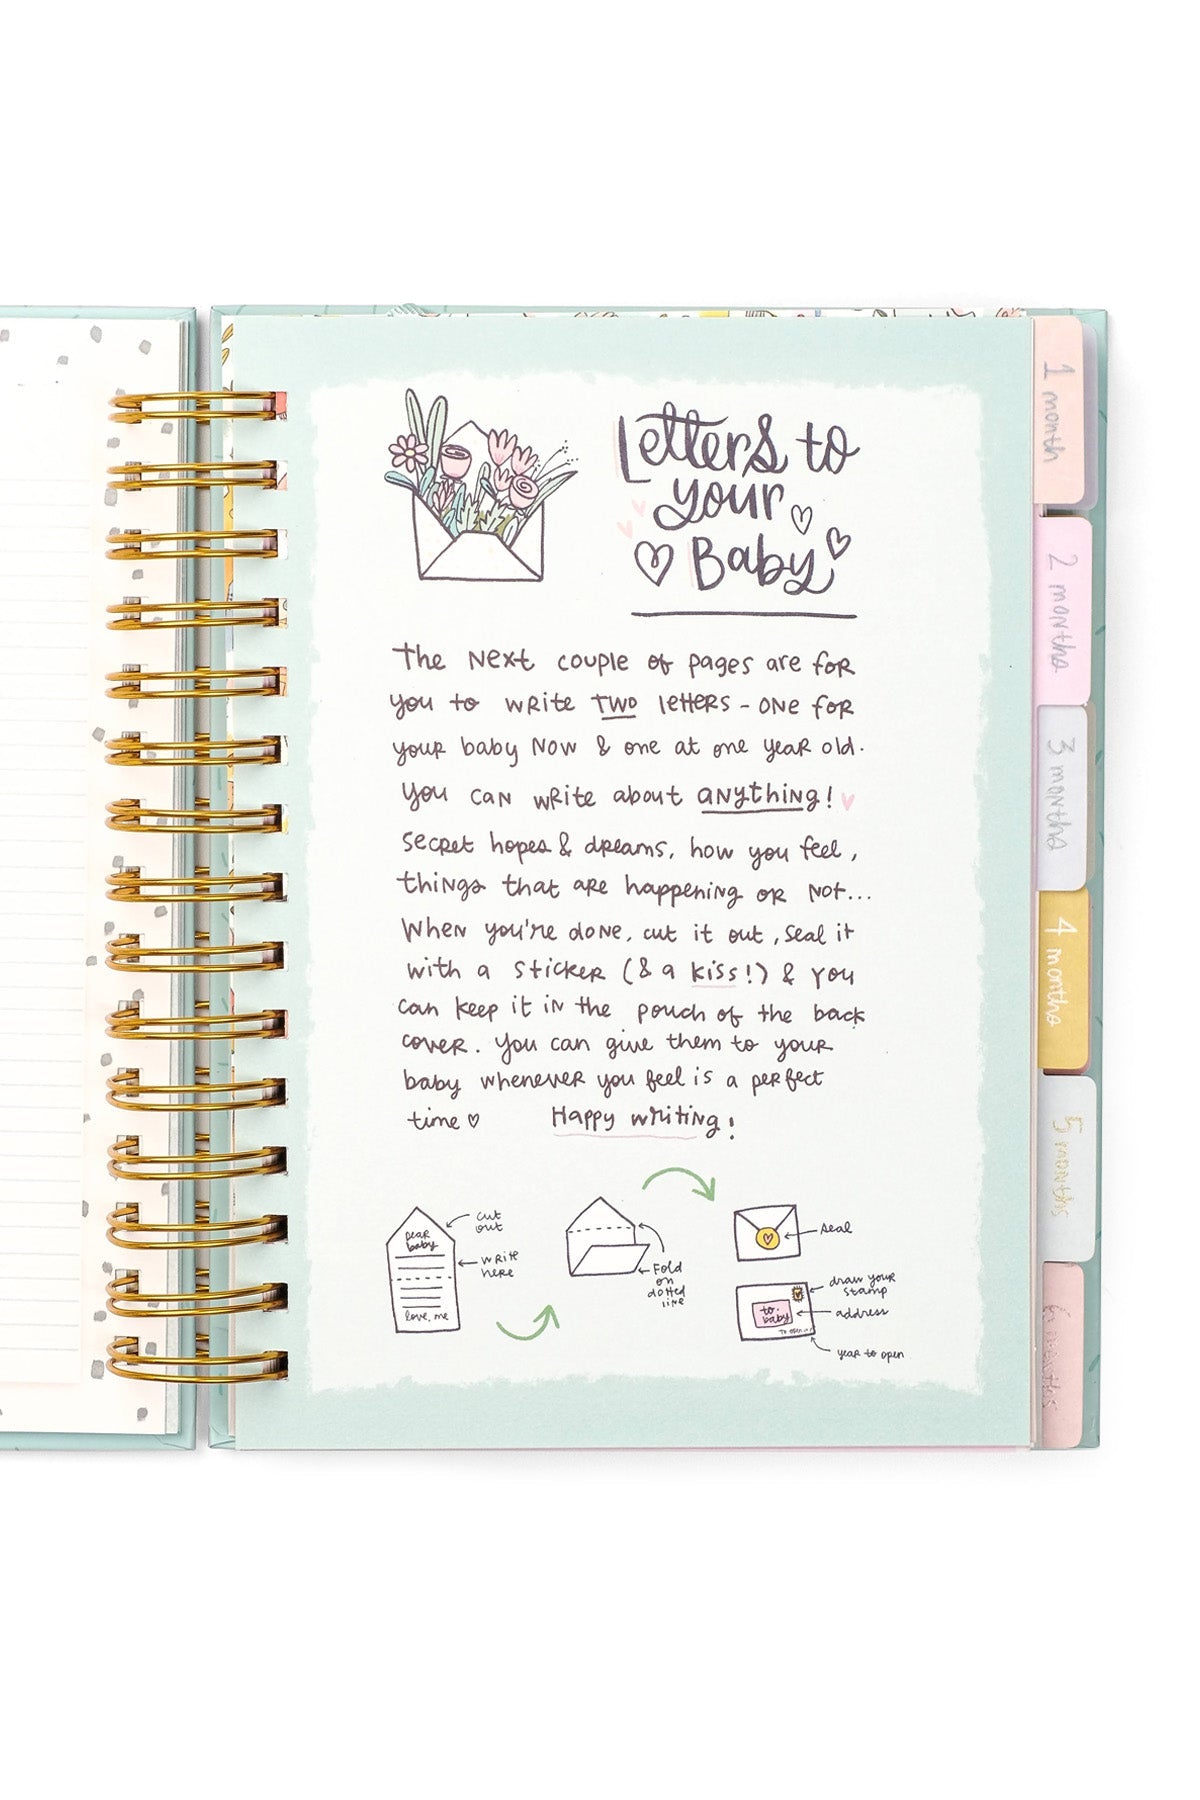 Letters to
your
Baby
The Next couple of pages are for
you to write TWO letters - one for
your baby Now & one at one year old.
You can write about anything!
Secret hopes & dreams, how you feel,
things that are happening or not...
When you're done, cut it out, seal it
with a sticker (& a kiss!) & you
can keep it in the pouch of the back
cover. You can give them to your
baby whenever you feel is a perfect
time
Happy writing!
cut
out
Dear
baby
write
here
love, me
Fold
on
dotted
line
seal
draw your
stamp
to:
baby
address
to open in
year to open
1 month
2 months
3 months
4 months
5 months
6 months